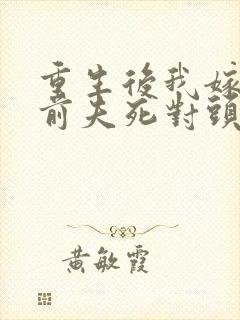 重生後我嫁
前夫死對頭
黃敏霞